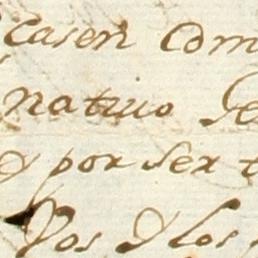 casen com
natiuo
y por ser t
Dos y los